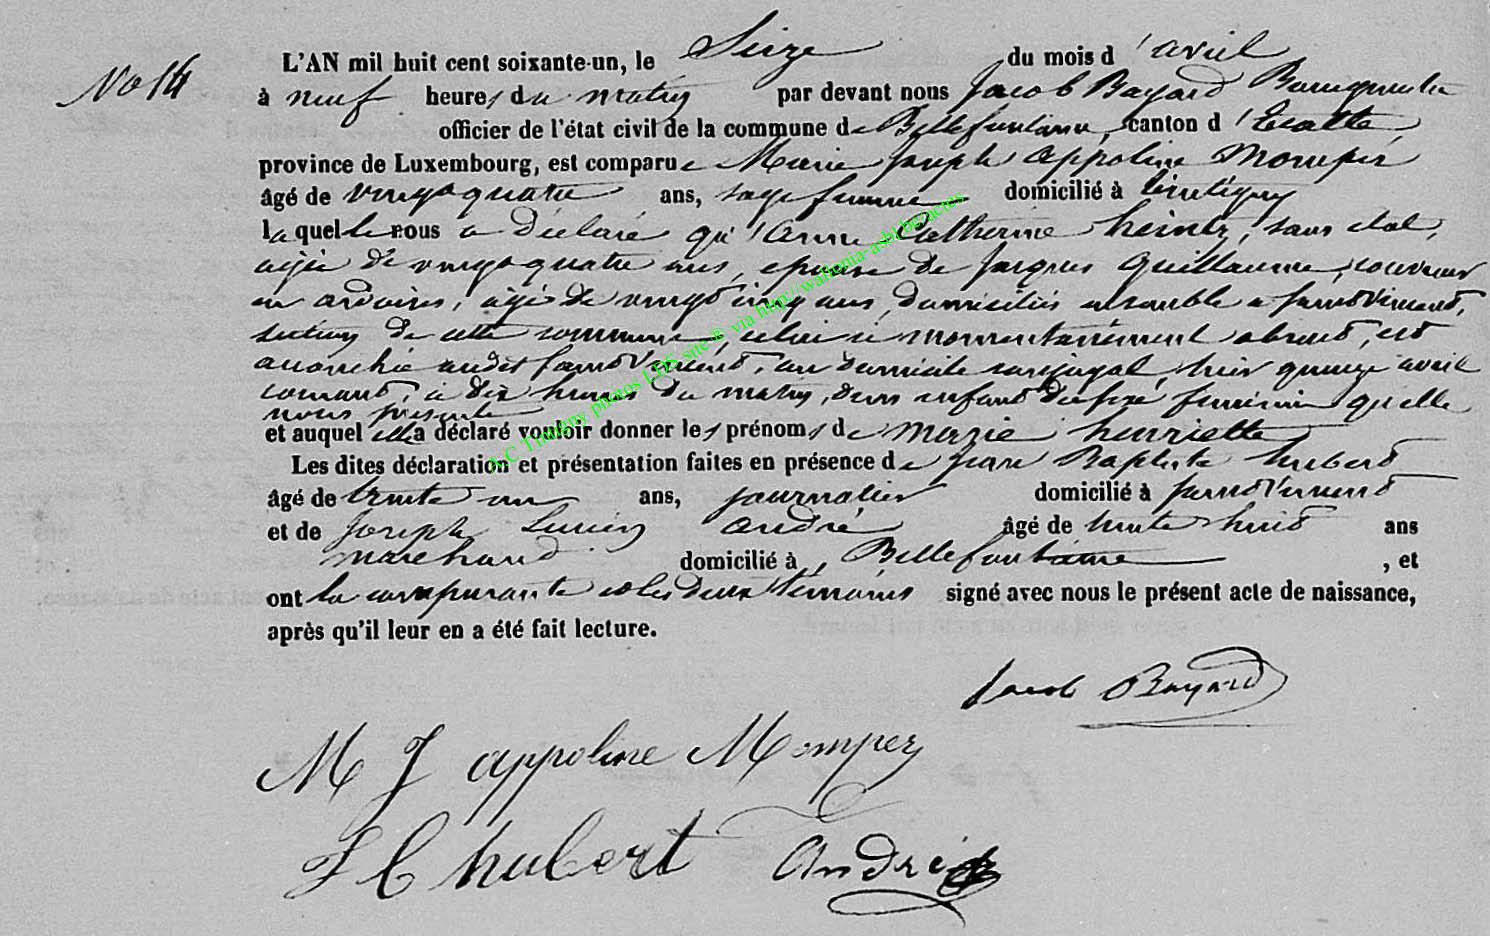 No 14
L'AN mil huit cent soixante-un, le Seize du mois d'avril
à neuf heures du matin par devant nous Jacob Bayard Bourgmestre
officier de l'état civil de la commune de Bellefontaine, canton d'Etalle,
province de Luxembourg, est comparue Marie Joseph Appoline Momper
âgé de vingt quatre ans, sage femme domicilié à Tintigny
laquelle nous a déclaré qu'Anne Catherine heintz, sans état,
agée de vingt quatre ans, épouse de Jacques Guillaume, couvreur
en ardoises, âgé de vingt cinq ans, domiciliés ensemble a
section de cette commune, celui ci momentanément absent, est
accouchée audit au domicile conjugal, hier quinze avril
courant, à dix heures du matin, d'un enfant du sexe féminin qu'elle
nous présente
et auquel elle a déclaré vouloir donner les prénoms de marie henriette
Les dites déclaration et présentation faites en présence de Jean Baptiste hubert
âgé de trente un ans, journalier domicilié à
et de Joseph Lucien André âgé de trente huit ans
marchand domicilié à Bellefontaine, et
ont la comparante et les deux témoins signé avec nous le présent acte de naissance,
après qu'il leur en a été fait lecture.
Jacob Bayard
M J appoline Momper
hubert André
A.C Tintigny photos LDS site © via http://wallonia-asbl.be/actes